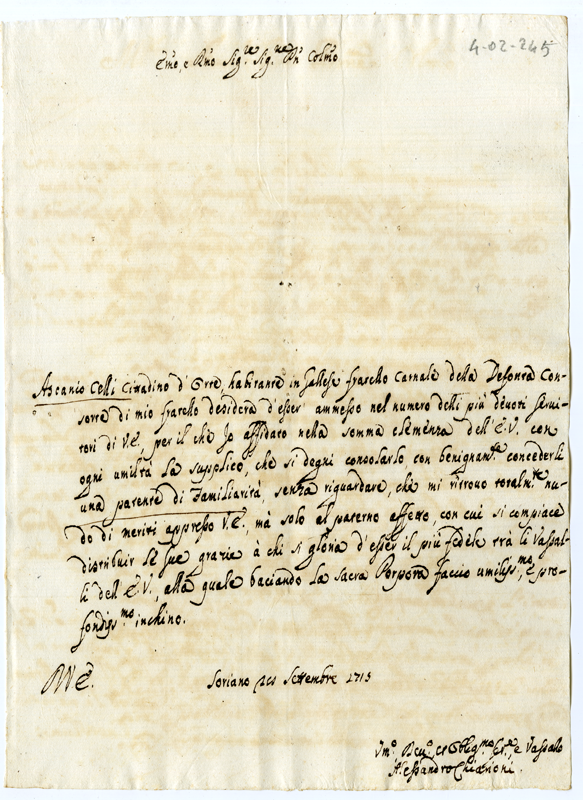 4-02-245
Emo, e Rmo Sig.re Sig.re Pn Colmo
Ascanio Celli Cittadino d'Orte, habitante in Gallese fratello Carnale della Defonta Con-
sorte di mio fratello desidera d'esser ammesso nel numero delli più devoti servi-
tori di V.E., per il che Io affidato nella somma clemenza dell'E.V. con
ogni umiltà la supplico, che si degni consolarlo con benignam.te concederli
una patente di Familiarità, senza riguardare, che mi ritrovo totalm.te nu-
do di meriti appresso V.E., mà solo al paterno affetto, con cui si compiace
distribuir le sue grazie à chi si gloria d'esser il più fedele trà li Vassal-
li dell'E.V., alla quale baciando la sacra Porpora faccio umiliss.mo, e pro-
fondiss.mo inchino.
Soriano Settembre 1715
Vm.o Dev.o et Oblig.mo e Vassallo
Alessandro Chiarioni.